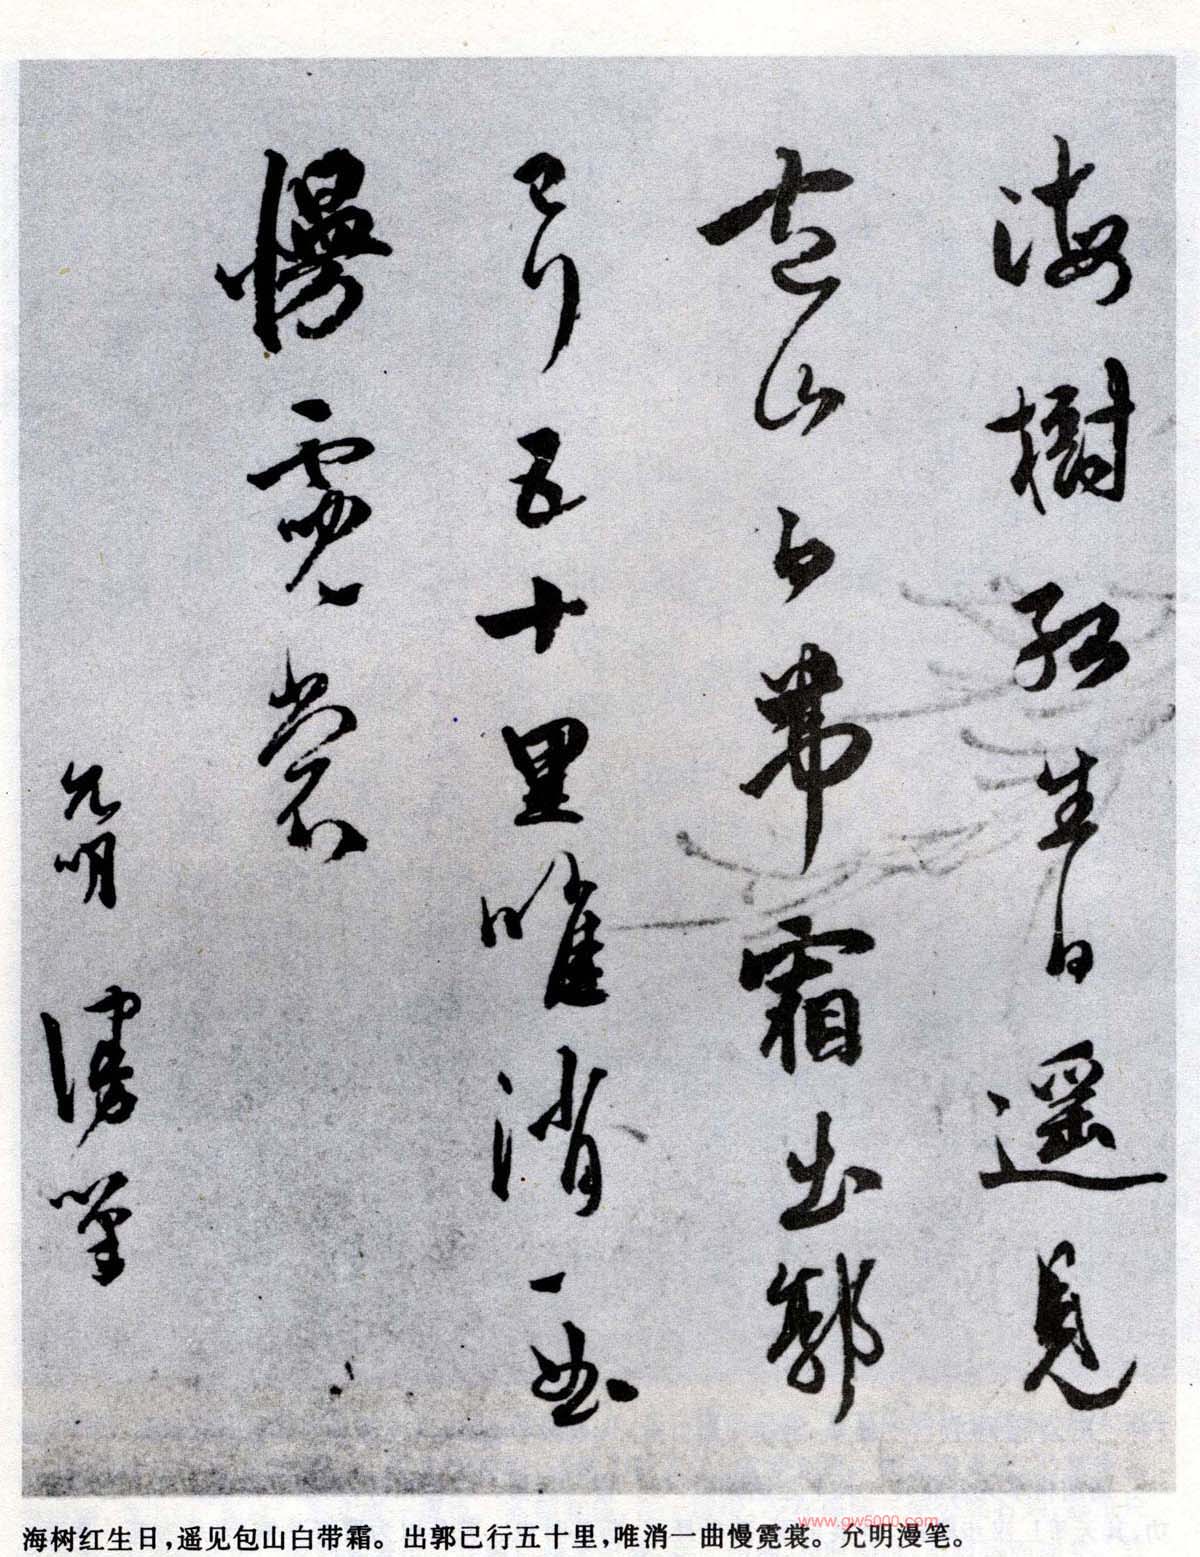 海樹紅生日遥見
包山白帶霜出郭
已行五十里唯消一曲
慢霓裳
允明漫筆
www.gw5000.com
海树红生日,遥见包山白带霜。出郭已行五十里,唯消一曲慢霓裳。允明漫笔。